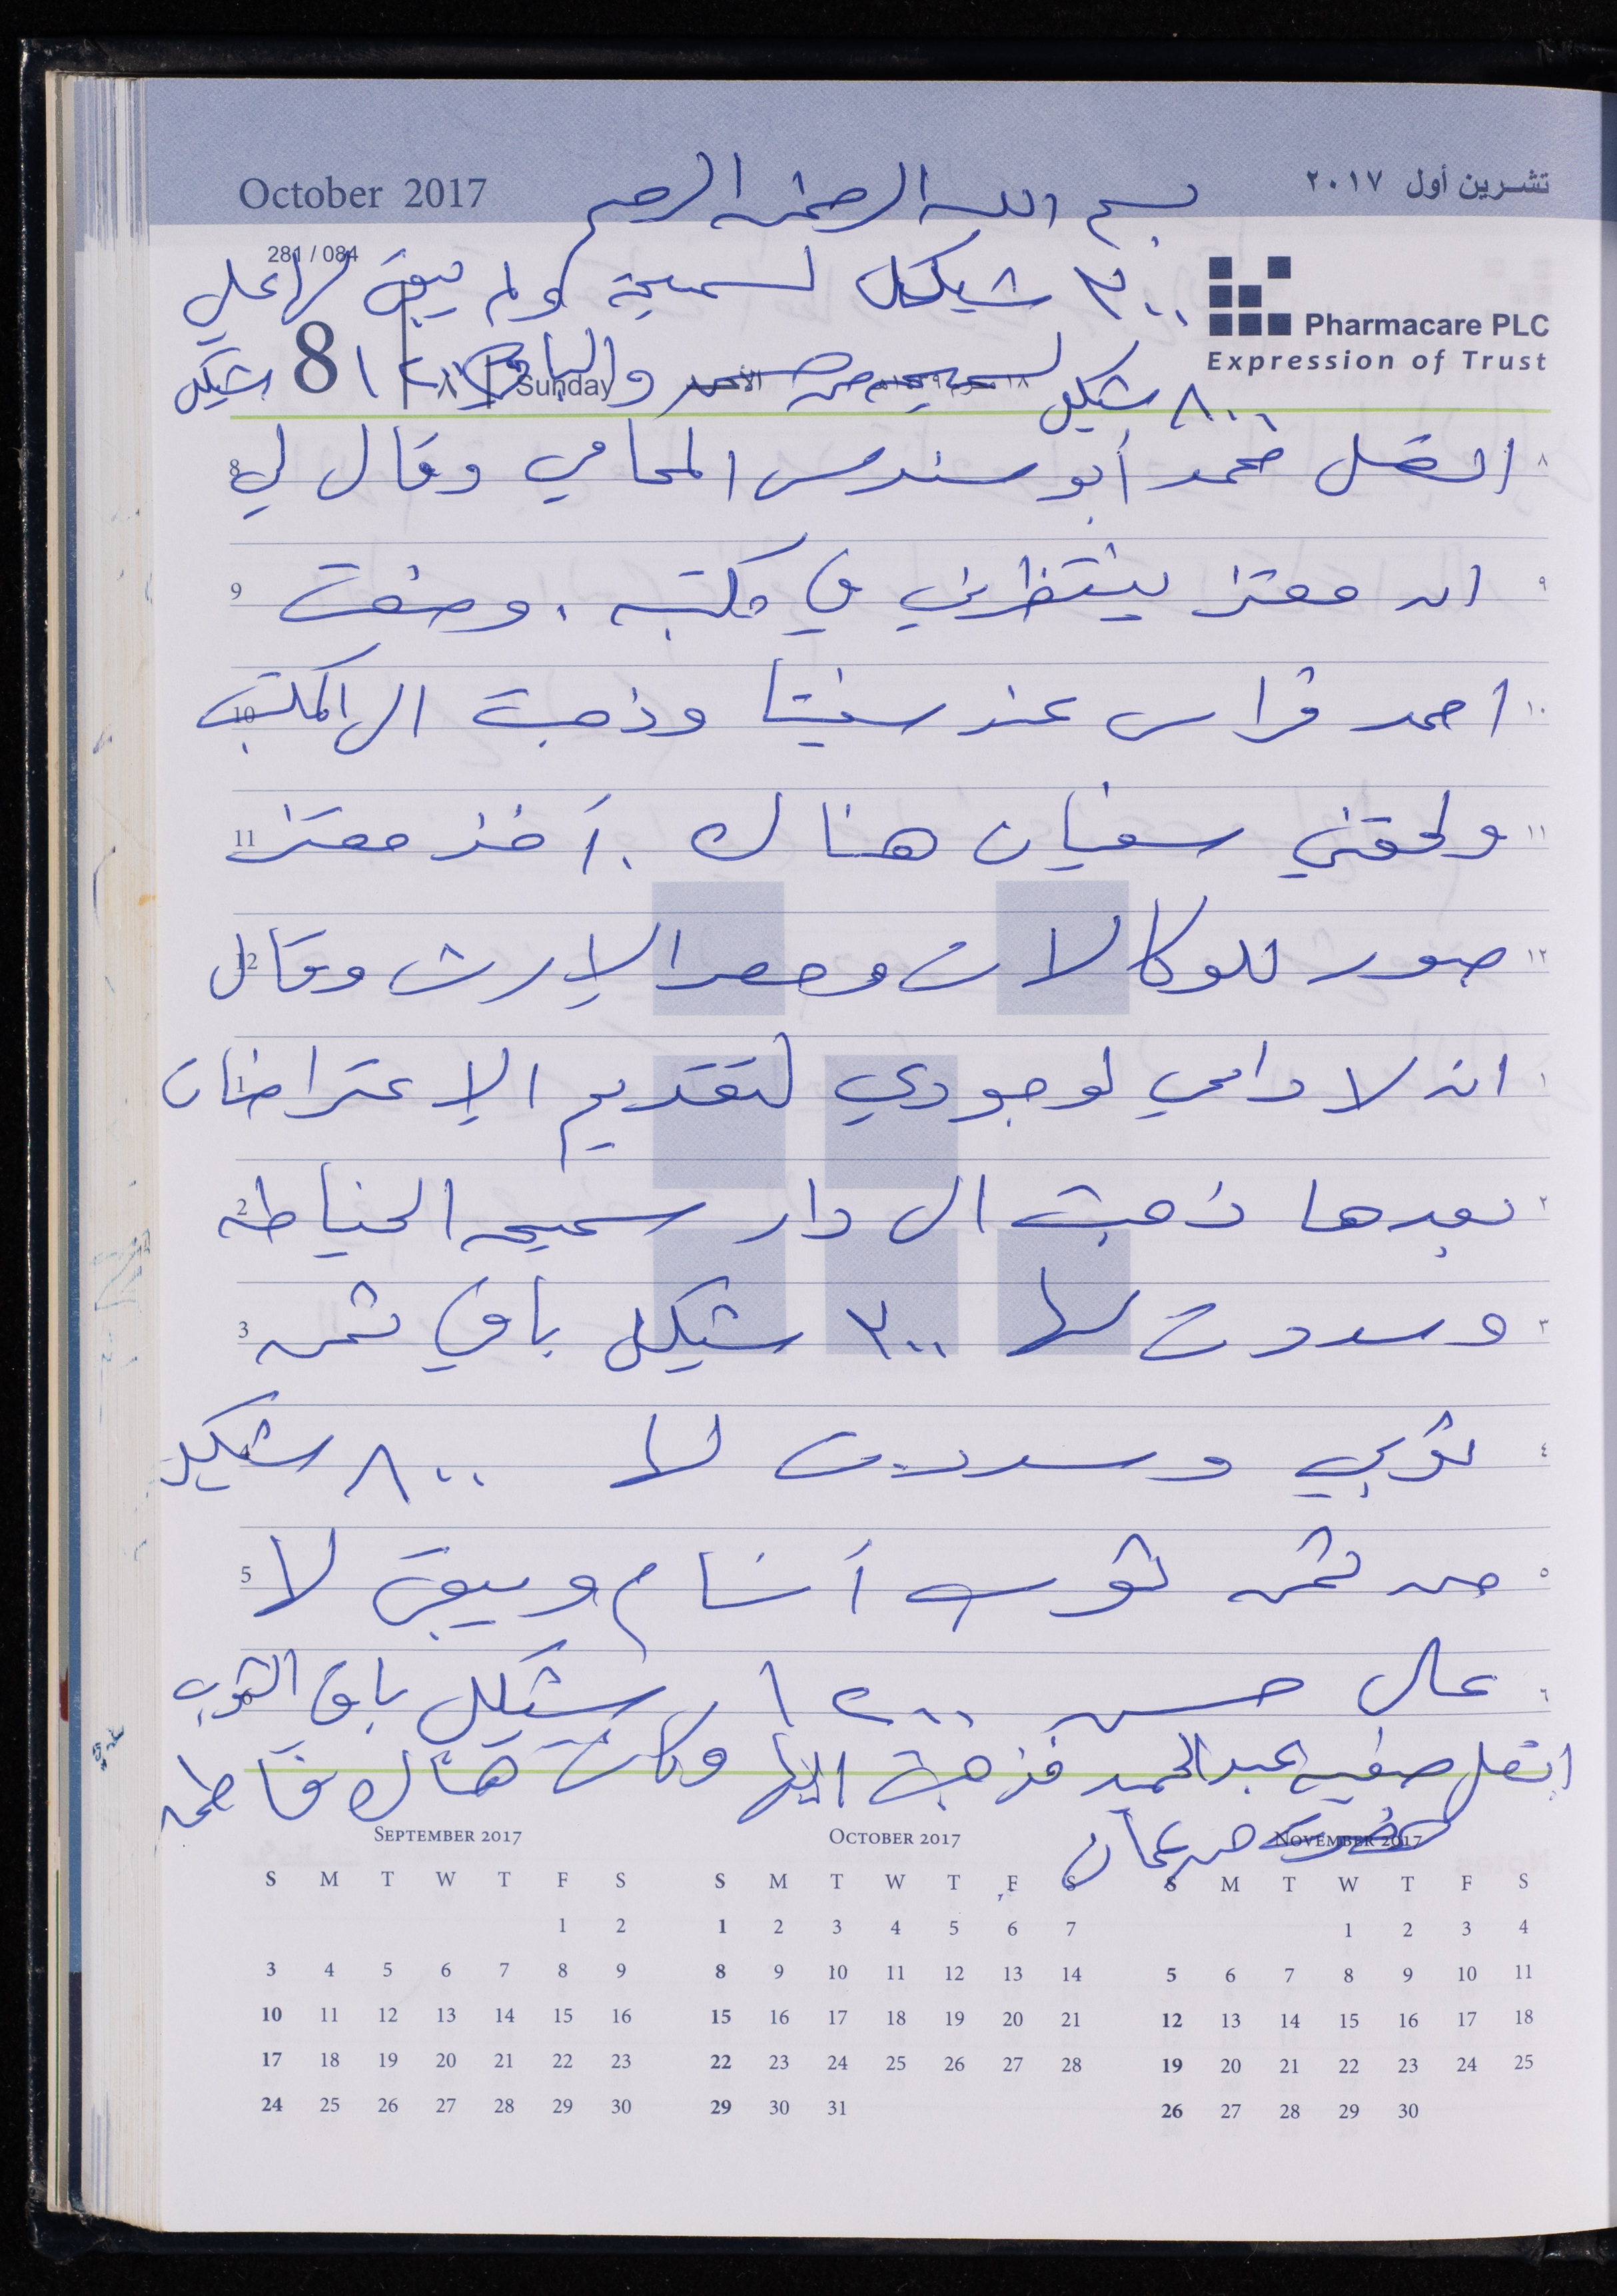 October 2017
تشرين أول ٢٠١٧
بسم الله الرحمن الرحيم
281 / 084
٣٠٠ شيكل لسميحة ولم يبق لها علي
Pharmacare PLC
Expression of Trust
٨٠٠ شيكل لسميحه من حسن والباقي ١٢٠٠ شيكل
8 Sunday الأحد
8 اتصل محمد أبو سندس المحامي وقال لي ٨
9 ان معتز ينتظرني في مكتبه . وضعت ٩
10 احمد فراس عند سفيتا وذهبت الى المكتب ١٠
11 ولحقني سفيان هناك . أخذ معتز ١١
12 صور للوكالات وحصر الإرث وقال ١٢
1 انه لا داعي لوجودي لتقديم الإعتراضات ١
2 بعدها ذهبت الى دار سميحه الخياطه ٢
3 وسددت لها ٣٠٠ شيكل باقي ثمن ٣
4 ثوبي وسددت لها ٨٠٠ شيكل ٤
5 من ثمن ثوب أنسام ويبقى لها ٥
على حسن ١٢٠٠ شيكل باقي الثوب ٦
اتصل صفيه عبد الحمد فذهبت اليها وكانت هناك فاطمه
حضرت من عمان
SEPTEMBER 2017 OCTOBER 2017 NOVEMBER 2017
S M T W T F S S M T W T F S S M T W T F S
1 2 1 2 3 4 5 6 7 1 2 3 4
3 4 5 6 7 8 9 8 9 10 11 12 13 14 5 6 7 8 9 10 11
10 11 12 13 14 15 16 15 16 17 18 19 20 21 12 13 14 15 16 17 18
17 18 19 20 21 22 23 22 23 24 25 26 27 28 19 20 21 22 23 24 25
24 25 26 27 28 29 30 29 30 31 26 27 28 29 30